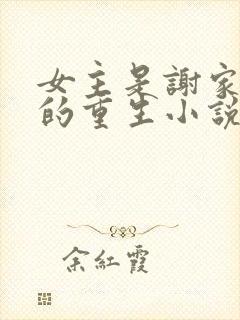 女主是謝家
的重生小說
余紅霞